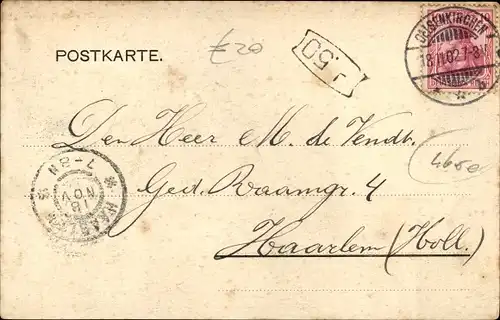 POSTKARTE.
£20
.50
GELSENKIRCHEN
18.11.02.7-8.V.
Den Heer M. de Vendt.
4650
Ged. Raamgr. 4
Haarlem (Holl.)
HAARLEM
18 NOV
7-8N